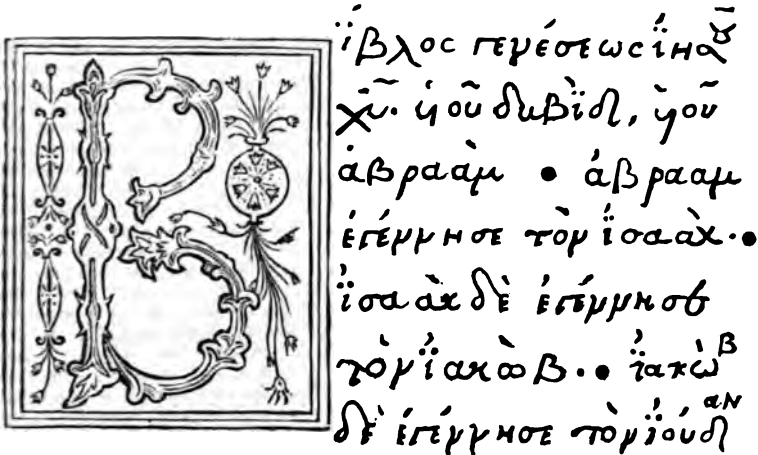 Βίβλος γενέσεως ἰησοῦ
χῦ. ὑοῦ δαβὶδ, ὑοῦ
ἀβραάμ • ἀβρααμ
ἐγέννησε τὸν ἰσαάκ. •
ἰ̈σαὰκ δὲ ἐγέννησε
τὸν ἰ̈ακὼβ. • ἰ̈ακὼβ
δὲ ἐγέννησε τὸν ἰ̈ούδαν